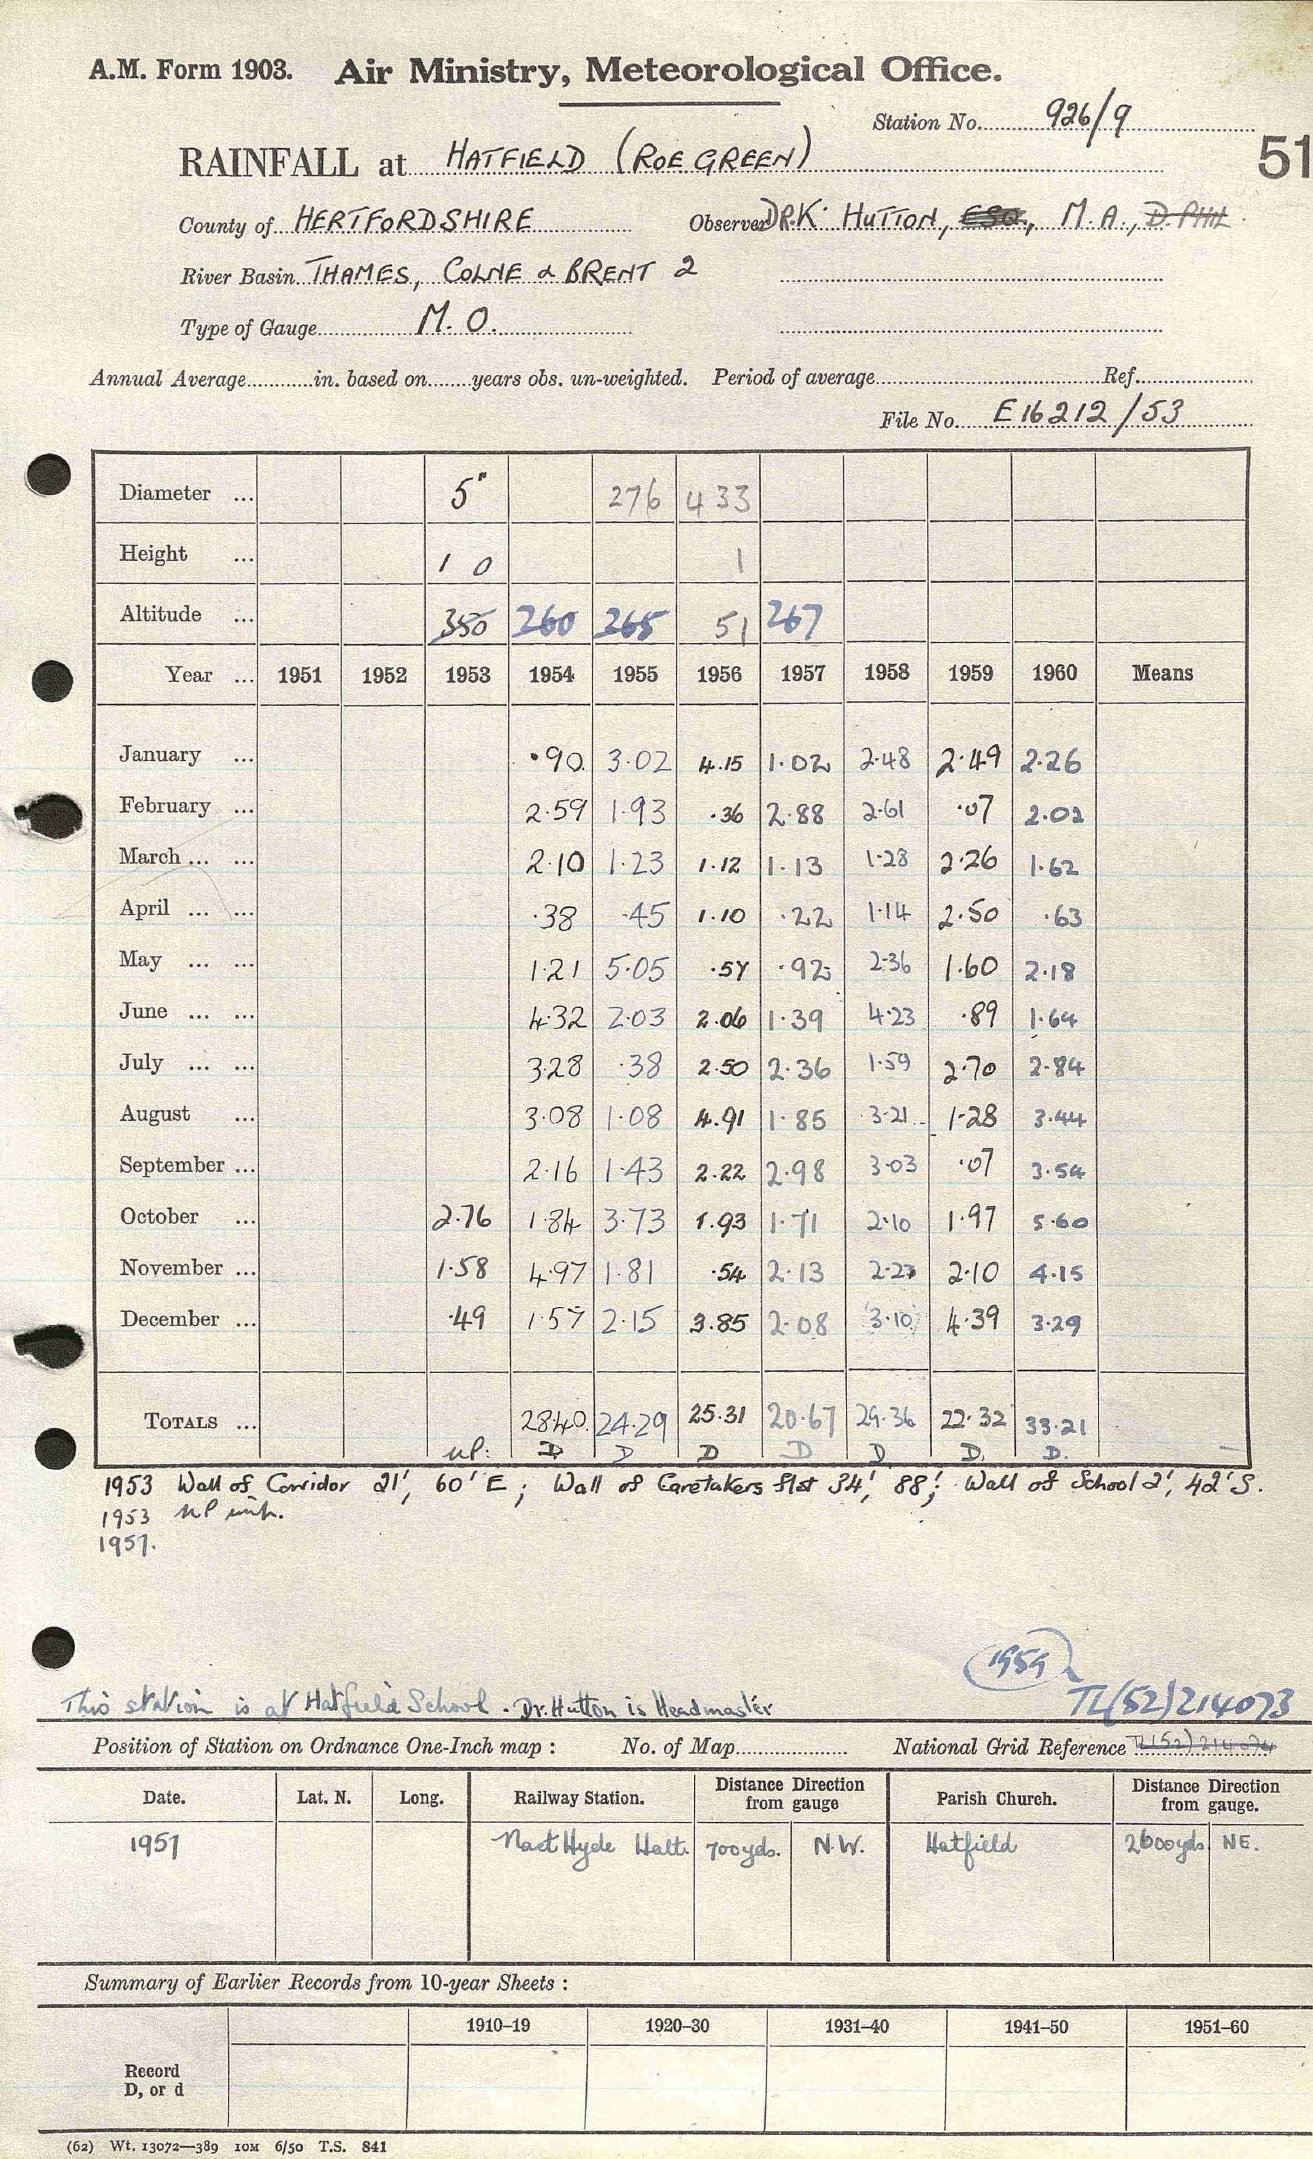 A.M. Form 1903. Air Ministry, Meteorological Office.
Station No. 926/9
51
RAINFALL at HATFIELD (ROE GREEN)
County of HERTFORDSHIRE Observer DR.K. HUTTON, ESQ., M.A., D.PHIL
River Basin THAMES, COLNE & BRENT 2
Type of Gauge M.O.
Annual Average in. based on years obs. un-weighted. Period of average Ref.
File No. E16212/53
Diameter ... 5" 276 433
Height ... 1 0 1
Altitude ... 350 260 265 51 267
Year ... 1951 1952 1953 1954 1955 1956 1957 1958 1959 1960 Means
January ... .90 3.02 4.15 1.02 2.48 2.49 2.26
February ... 2.59 1.93 .36 2.88 2.61 .07 2.02
March ... ... 2.10 1.23 1.12 1.13 1.28 2.26 1.62
April ... ... .38 .45 1.10 .22 1.14 2.50 .63
May ... ... 1.21 5.05 .57 .92 2.36 1.60 2.18
June ... ... 4.32 2.03 2.06 1.39 4.23 .89 1.64
July ... ... 3.28 .38 2.50 2.36 1.59 2.70 2.84
August ... 3.08 1.08 4.91 1.85 3.21 1.28 3.44
September ... 2.16 1.43 2.22 2.98 3.03 .07 3.54
October ... 2.76 1.84 3.73 1.93 1.71 2.10 1.97 5.60
November ... 1.58 4.97 1.81 .54 2.13 2.23 2.10 4.15
December ... .49 1.57 2.15 3.85 2.08 3.10 4.39 3.29
TOTALS ... 28.40 24.29 25.31 20.67 29.36 22.32 33.21
NP. D D D D D D. D.
1953 Wall of Corridor 21', 60' E; Wall of Caretakers flat 34', 88'; Wall of School 2', 42' S.
1953 NP
1957.
1959
This station is at Hatfield School. Dr. Hutton is Headmaster TL(52)214073
Position of Station on Ordnance One-Inch map : No. of Map National Grid Reference TL(52)214074
Date. Lat. N. Long. Railway Station. Distance Direction from gauge Parish Church. Distance Direction from gauge.
1957 Nast Hyde Halt. 700yds. N.W. Hatfield 2600yds NE.
Summary of Earlier Records from 10-year Sheets :
1910–19 1920–30 1931–40 1941–50 1951–60
Record
D, or d
(62) Wt. 13072—389 10M 6/50 T.S. 841